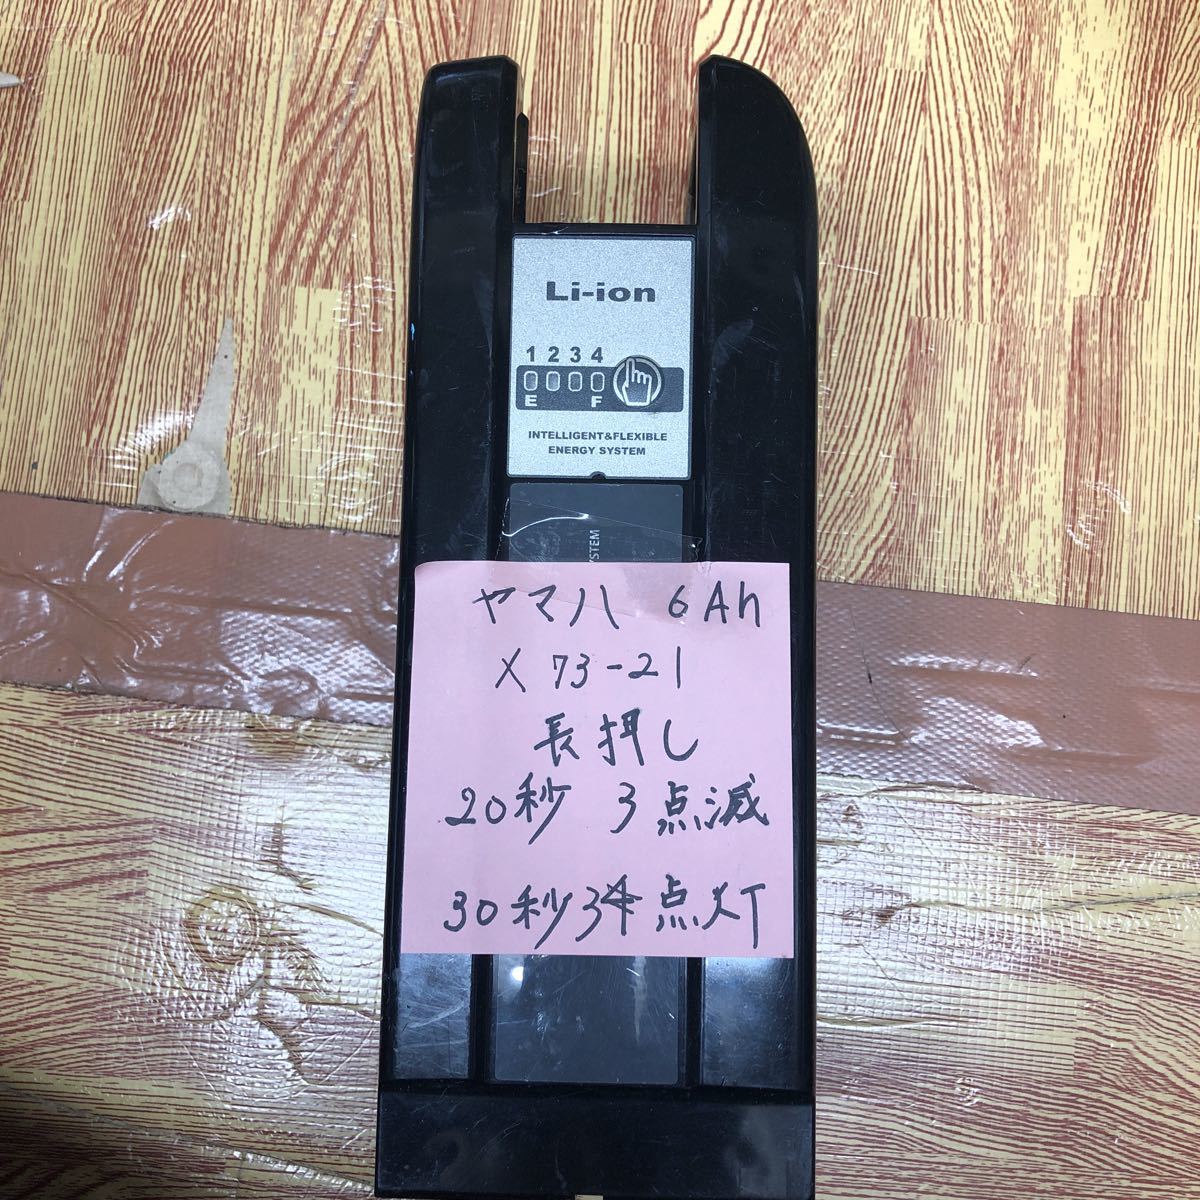 Li-ion
1 2 3 4
E F
INTELLIGENT&FLEXIBLE
ENERGY SYSTEM
YSTEM
ヤマハ 6Ah
X73-21
長押し
20秒 3点滅
30秒34点灯